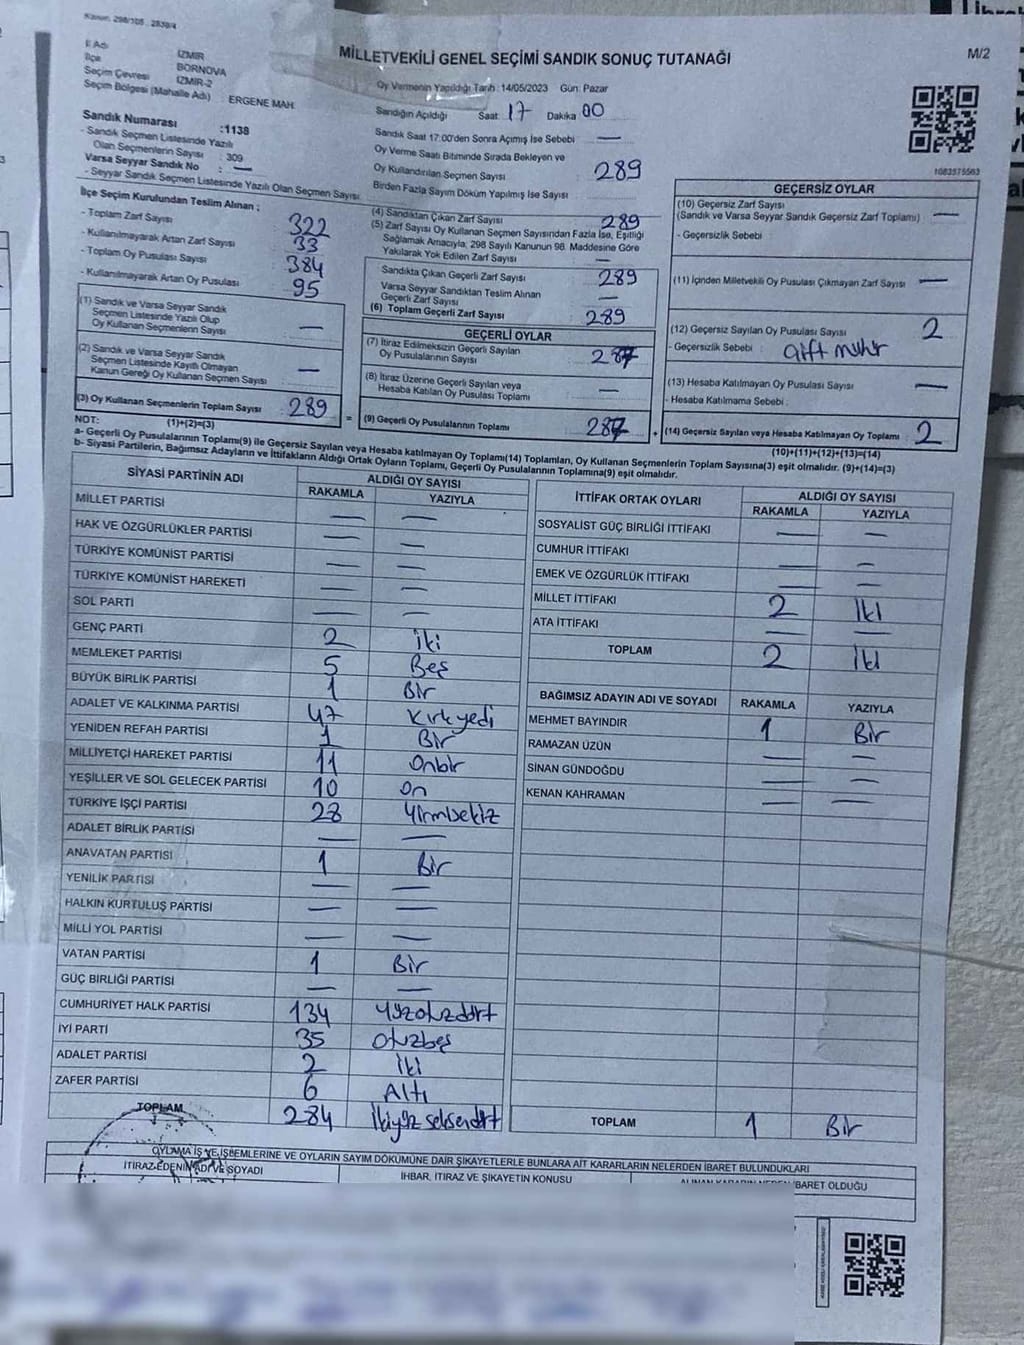 Kanun: 298/105 , 2839/4
MİLLETVEKİLİ GENEL SEÇİMİ SANDIK SONUÇ TUTANAĞI
M/2
İl Adı İZMİR
İlçe BORNOVA
Seçim Çevresi İZMİR-2
Seçim Bölgesi (Mahalle Adı) : ERGENE MAH.
Sandık Numarası :1138
- Sandık Seçmen Listesinde Yazılı
Olan Seçmenlerin Sayısı : 309
Varsa Seyyar Sandık No : —
- Seyyar Sandık Seçmen Listesinde Yazılı Olan Seçmen Sayısı
Oy Vermenin Yapıldığı Tarih : 14/05/2023 Gün: Pazar
Sandığın Açıldığı Saat 17 Dakika 00
Sandık Saat 17:00'den Sonra Açılmış İse Sebebi —
Oy Verme Saati Bitiminde Sırada Bekleyen ve
Oy Kullandırılan Seçmen Sayısı 289
Birden Fazla Sayım Döküm Yapılmış İse Sayısı
1083575563
İlçe Seçim Kurulundan Teslim Alınan ;
- Toplam Zarf Sayısı 322
- Kullanılmayarak Artan Zarf Sayısı 33
- Toplam Oy Pusulası Sayısı 384
- Kullanılmayarak Artan Oy Pusulası 95
(1) Sandık ve Varsa Seyyar Sandık
Seçmen Listesinde Yazılı Olup
Oy Kullanan Seçmenlerin Sayısı —
(2) Sandık ve Varsa Seyyar Sandık
Seçmen Listesinde Kayıtlı Olmayan
Kanun Gereği Oy Kullanan Seçmen Sayısı —
(3) Oy Kullanan Seçmenlerin Toplam Sayısı 289 =
(1)+(2)=(3)
(4) Sandıktan Çıkan Zarf Sayısı 289
(5) Zarf Sayısı Oy Kullanan Seçmen Sayısından Fazla İse, Eşitliği
Sağlamak Amacıyla; 298 Sayılı Kanunun 98. Maddesine Göre
Yakılarak Yok Edilen Zarf Sayısı —
Sandıkta Çıkan Geçerli Zarf Sayısı 289
Varsa Seyyar Sandıktan Teslim Alınan
Geçerli Zarf Sayısı —
(6) Toplam Geçerli Zarf Sayısı 289
GEÇERLİ OYLAR
(7) İtiraz Edilmeksizin Geçerli Sayılan
Oy Pusulalarının Sayısı 287
(8) İtiraz Üzerine Geçerli Sayılan veya
Hesaba Katılan Oy Pusulası Toplamı —
(9) Geçerli Oy Pusulalarının Toplamı 287 +
GEÇERSİZ OYLAR
(10) Geçersiz Zarf Sayısı
(Sandık ve Varsa Seyyar Sandık Geçersiz Zarf Toplamı) —
- Geçersizlik Sebebi :
(11) İçinden Milletvekili Oy Pusulası Çıkmayan Zarf Sayısı —
(12) Geçersiz Sayılan Oy Pusulası Sayısı 2
- Geçersizlik Sebebi : Çift mühür
(13) Hesaba Katılmayan Oy Pusulası Sayısı —
- Hesaba Katılmama Sebebi :
(14) Geçersiz Sayılan veya Hesaba Katılmayan Oy Toplamı 2
(10)+(11)+(12)+(13)=(14)
NOT:
a- Geçerli Oy Pusulalarının Toplamı(9) ile Geçersiz Sayılan veya Hesaba katılmayan Oy Toplamı(14) Toplamları, Oy Kullanan Seçmenlerin Toplam Sayısına(3) eşit olmalıdır. (9)+(14)=(3)
b- Siyasi Partilerin, Bağımsız Adayların ve İttifakların Aldığı Ortak Oyların Toplamı, Geçerli Oy Pusulalarının Toplamına(9) eşit olmalıdır.
SİYASİ PARTİNİN ADI ALDIĞI OY SAYISI
RAKAMLA YAZIYLA
MİLLET PARTİSİ — —
HAK VE ÖZGÜRLÜKLER PARTİSİ — —
TÜRKİYE KOMÜNİST PARTİSİ — —
TÜRKİYE KOMÜNİST HAREKETİ — —
SOL PARTİ — —
GENÇ PARTİ 2 İki
MEMLEKET PARTİSİ 5 Beş
BÜYÜK BİRLİK PARTİSİ 1 Bir
ADALET VE KALKINMA PARTİSİ 47 Kırkyedi
YENİDEN REFAH PARTİSİ 1 Bir
MİLLİYETÇİ HAREKET PARTİSİ 11 Onbir
YEŞİLLER VE SOL GELECEK PARTİSİ 10 On
TÜRKİYE İŞÇİ PARTİSİ 28 Yirmisekiz
ADALET BİRLİK PARTİSİ — —
ANAVATAN PARTİSİ 1 Bir
YENİLİK PARTİSİ — —
HALKIN KURTULUŞ PARTİSİ — —
MİLLİ YOL PARTİSİ — —
VATAN PARTİSİ 1 Bir
GÜÇ BİRLİĞİ PARTİSİ — —
CUMHURİYET HALK PARTİSİ 134 Yüzotuzdört
İYİ PARTİ 35 Otuzbeş
ADALET PARTİSİ 2 İki
ZAFER PARTİSİ 6 Altı
TOPLAM 284 İkiyüz seksendört
İTTİFAK ORTAK OYLARI ALDIĞI OY SAYISI
RAKAMLA YAZIYLA
SOSYALİST GÜÇ BİRLİĞİ İTTİFAKI — —
CUMHUR İTTİFAKI — —
EMEK VE ÖZGÜRLÜK İTTİFAKI — —
MİLLET İTTİFAKI 2 İki
ATA İTTİFAKI — —
TOPLAM 2 İki
BAĞIMSIZ ADAYIN ADI VE SOYADI RAKAMLA YAZIYLA
MEHMET BAYINDIR 1 Bir
RAMAZAN ÜZÜN — —
SİNAN GÜNDOĞDU — —
KENAN KAHRAMAN — —
TOPLAM 1 Bir
OYLAMA İŞ VE İŞLEMLERİNE VE OYLARIN SAYIM DÖKÜMÜNE DAİR ŞİKAYETLERLE BUNLARA AİT KARARLARIN NELERDEN İBARET BULUNDUKLARI
İTİRAZ EDENİN ADI VE SOYADI İHBAR, İTİRAZ VE ŞİKAYETİN KONUSU ALINAN KARARIN NEDEN İBARET OLDUĞU